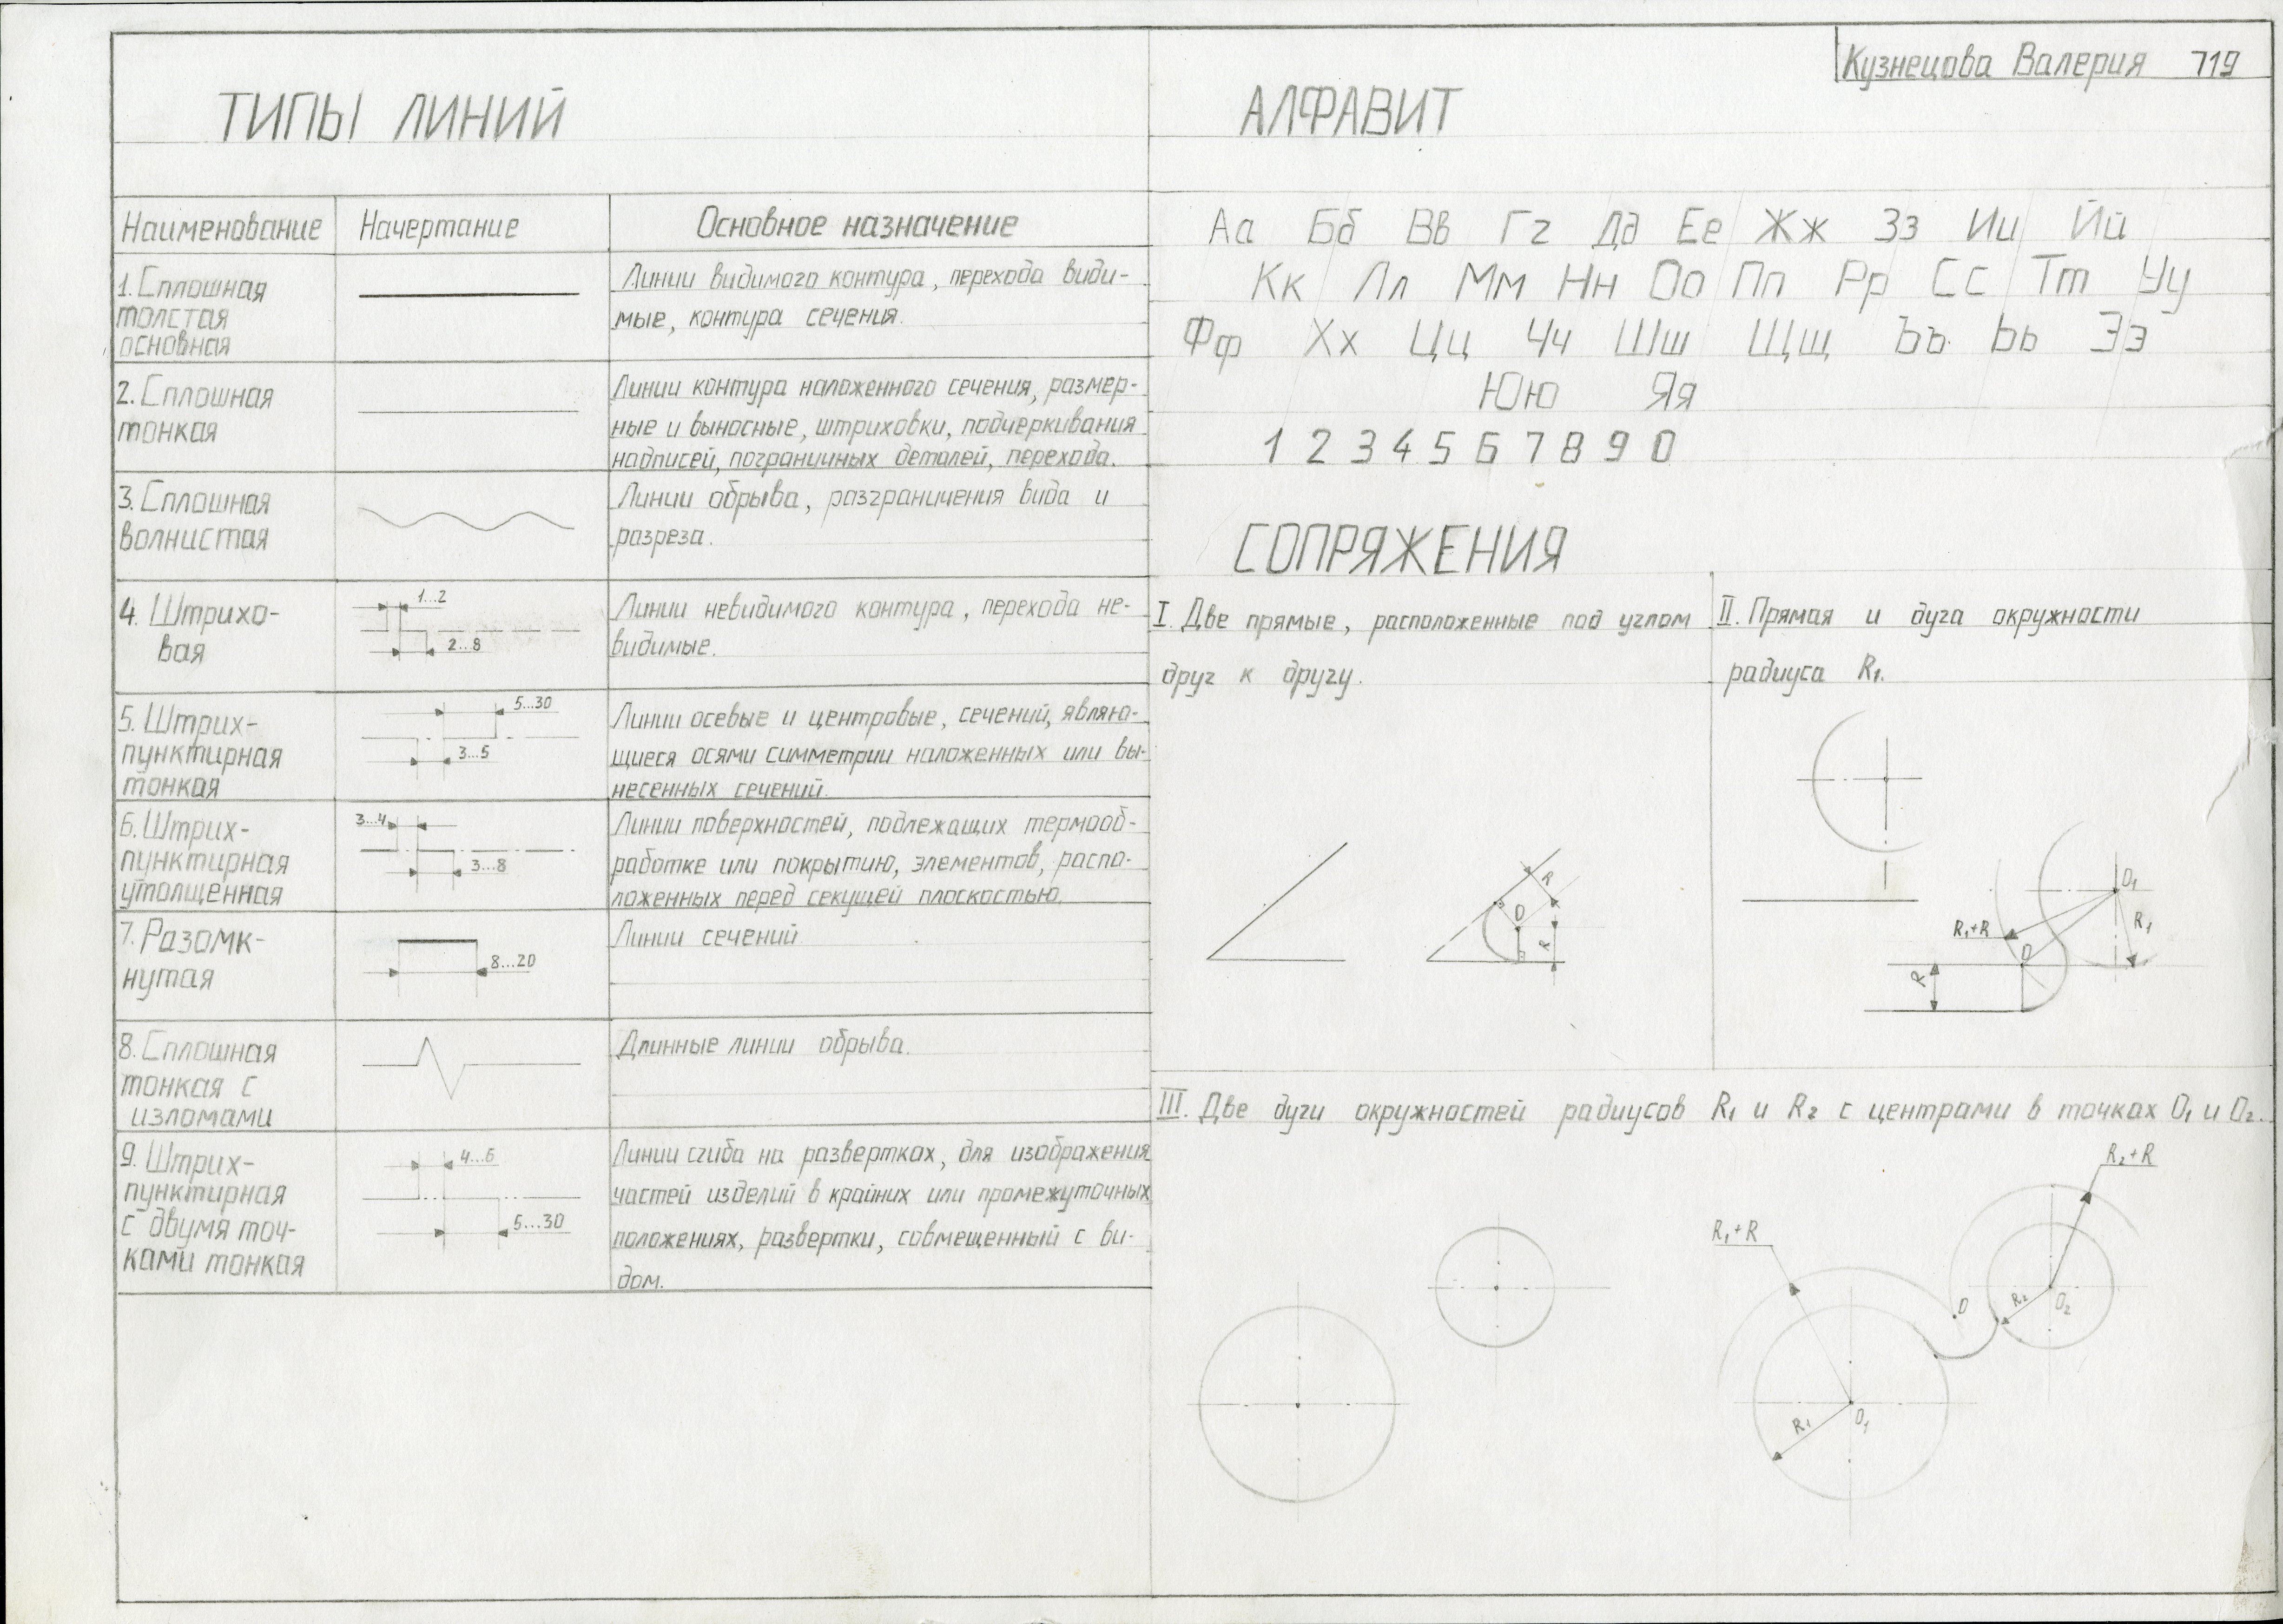 Кузнецова Валерия 719
ТИПЫ ЛИНИЙ
Наименование
Начертание
Основное назначение
1. Сплошная
толстая
основная
Линии видимого контура, перехода види-
мые, контура сечения.
2. Сплошная
тонкая
Линии контура наложенного сечения, размер-
ные и выносные, штриховки, подчеркивания
надписей, пограничных деталей, перехода.
3. Сплошная
волнистая
Линии обрыва, разграничения вида и
разреза.
4. Штрихо-
вая
1...2
2...8
Линии невидимого контура, перехода не-
видимые.
5. Штрих-
пунктирная
тонкая
5...30
3...5
Линии осевые и центровые, сечений, являю-
щиеся осями симметрии наложенных или вы-
несенных сечений.
6. Штрих-
пунктирная
утолщенная
3...4
3...8
Линии поверхностей, подлежащих термооб-
работке или покрытию, элементов, распо-
ложенных перед секущей плоскостью.
7. Разомк-
нутая
8...20
Линии сечений
8. Сплошная
тонкая с
изломами
Длинные линии обрыва.
9. Штрих-
пунктирная
с двумя точ-
ками тонкая
4...6
5...30
Линии сгиба на развертках, для изображения
частей изделий в крайних или промежуточных
положениях, развертки, совмещенный с ви-
дом.
АЛФАВИТ
Аа Бб Вв Гг Дд Ее Жж Зз Ии Йй
Кк Лл Мм Нн Оо Пп Рр Сс Тт Уу
Фф Хх Цц Чч Шш Щщ Ъъ Ьь Ээ
Юю Яя
1 2 3 4 5 6 7 8 9 0
СОПРЯЖЕНИЯ
I. Две прямые, расположенные под углом
друг к другу.
R
O
R
II. Прямая и дуга окружности
радиуса R₁.
O₁
R₁+R
R₁
O
R
III. Две дуги окружностей радиусов R₁ и R₂ с центрами в точках O₁ и O₂.
R₂+R
R₁+R
O
R₂
O₂
R₁
O₁